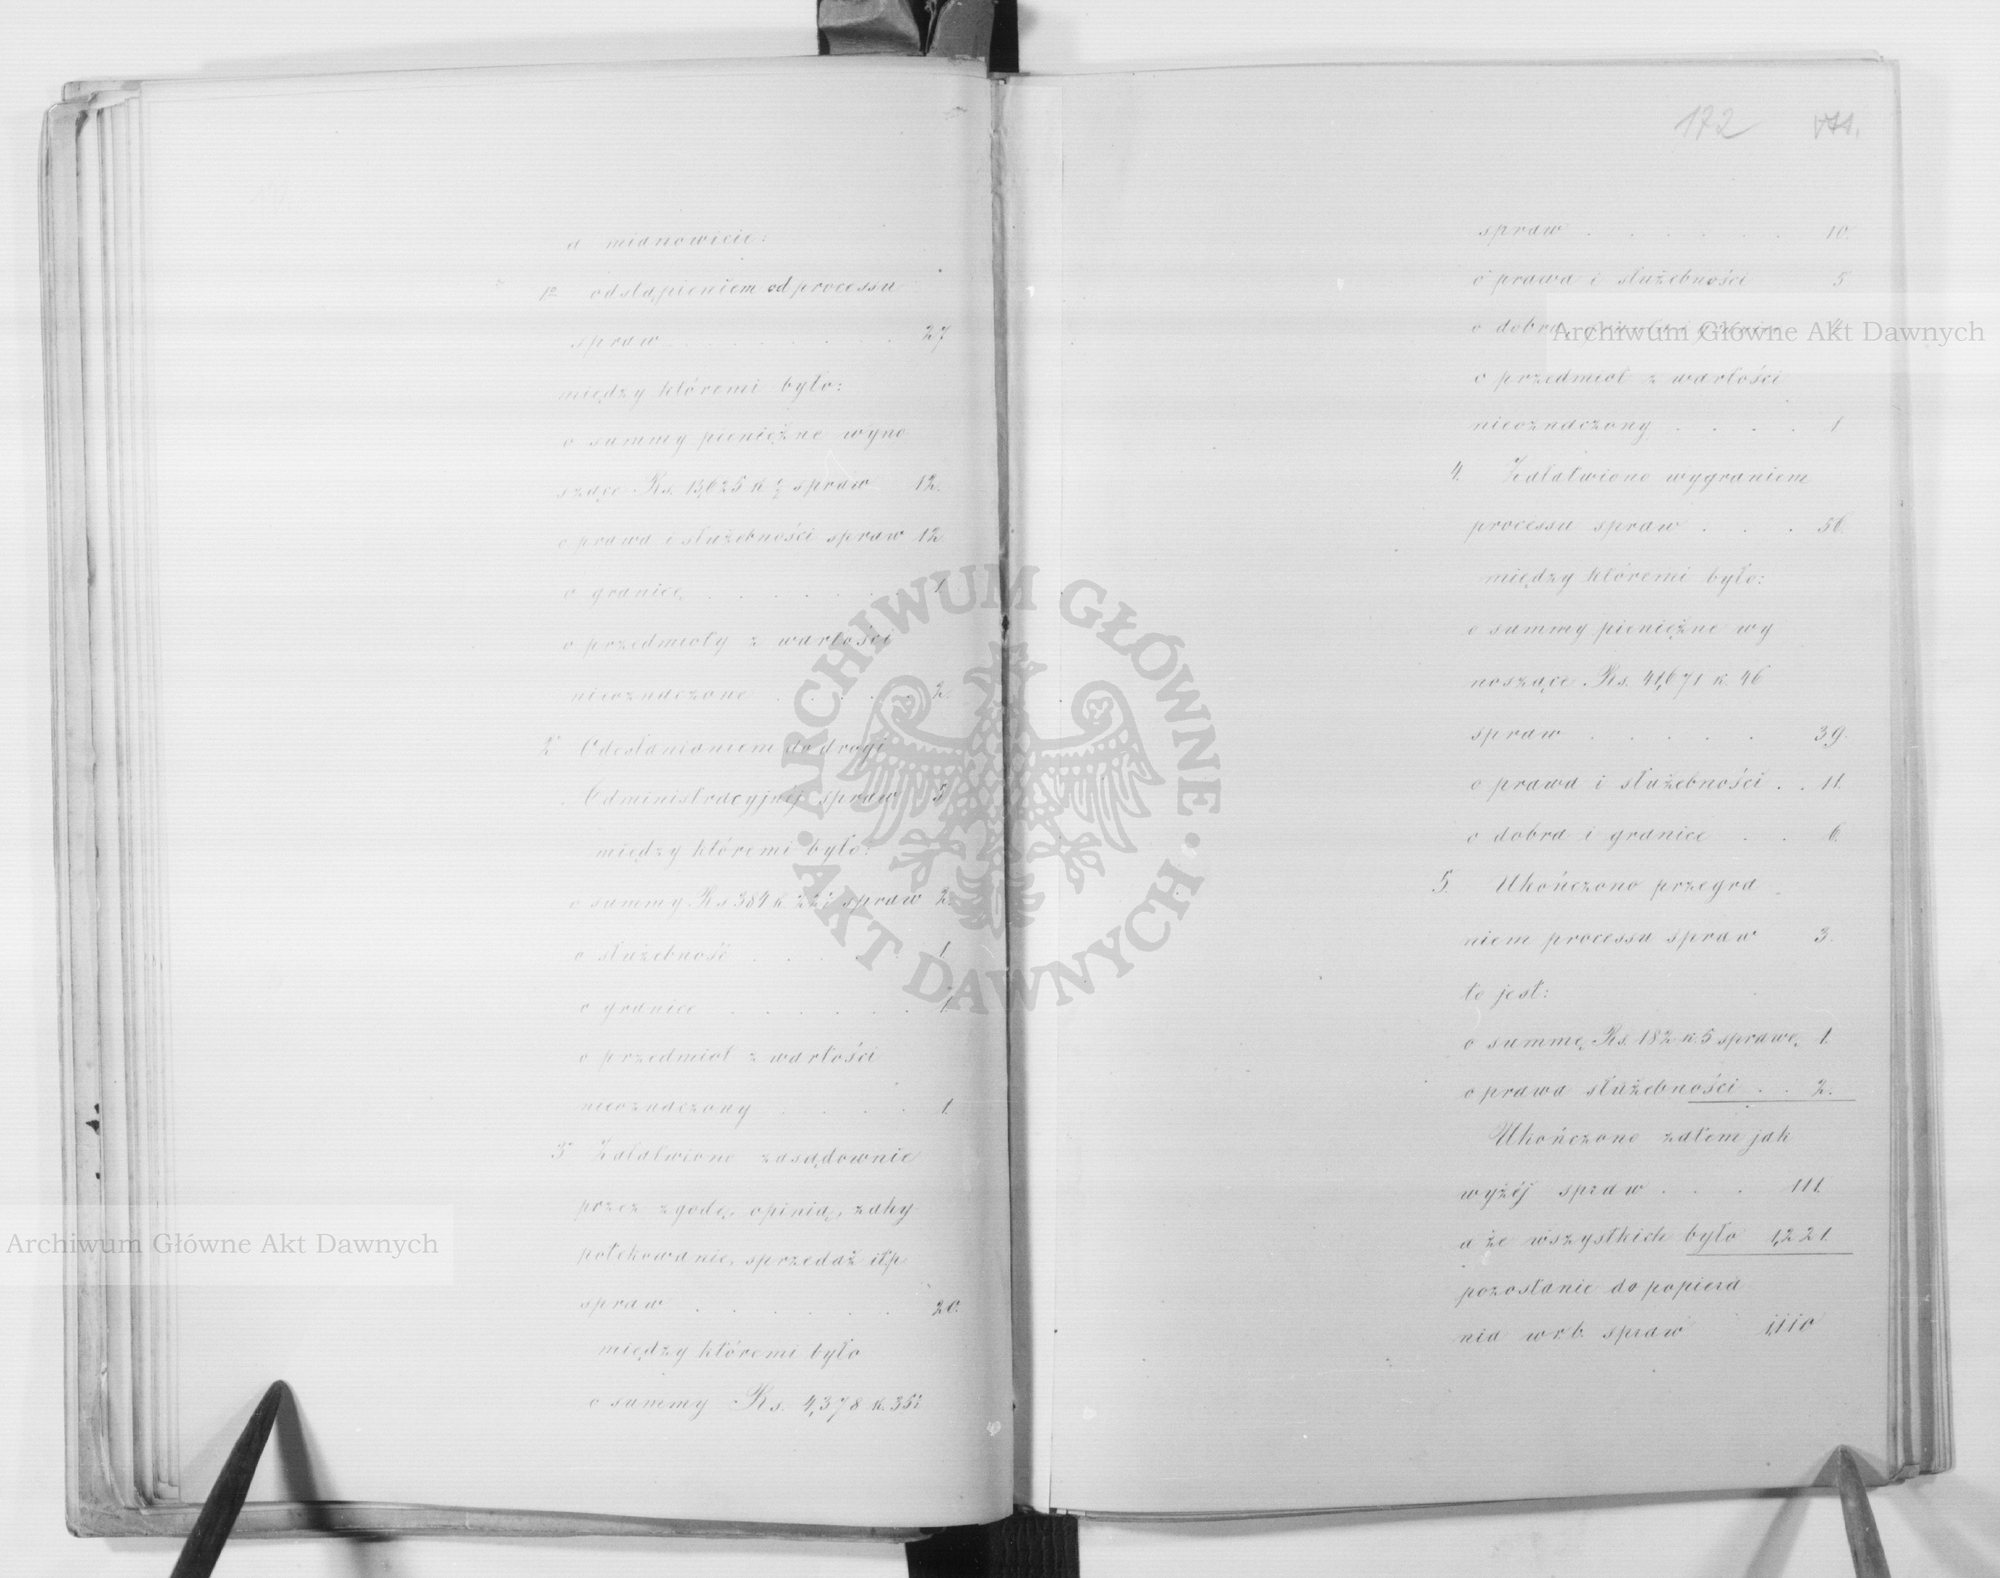 a mianowicie:
1o odstąpieniem od processu
spraw . . . . . . . 27
między któremi było:
o summy pieniężne wyno
szące Rs. 13,625 k ½ spraw 12.
o prawa i służebności spraw 12
o granicę . . . . . . . 1
o przedmioty z wartości
nieoznaczone . . . . . 2.
2o Odesłanianiem do drogi
Administracyjnej spraw 5
między któremi było:
o summy Rs 384 k 22½ spraw 2.
o służebność . . . . . 1
o granice . . . . . . 1.
o przedmiot z wartości
nieoznaczony . . . . 1.
3o Załatwiono zasądownie
przez zgodę, opinią, zahy
potekowanie, sprzedaż itp
spraw . . . . . . . 20.
między któremi było
o summy Rs. 4,378 k. 35½
172 171.
spraw . . . . . . 10.
o prawa i służebności 5
o dobra, grunta i granice 4
o przedmiot z wartości
nieoznaczony . . . . 1
4. Załatwiono wygraniem
processu spraw . . . 56.
między któremi było:
o summy pieniężne wy
noszące Rs. 41,671 k. 46
spraw . . . . . 39.
o prawa i służebności . . 11.
o dobra i granice . . 6.
5. Ukończono przegra
niem processu spraw 3.
to jest:
o summę Rs. 182 k. 5 sprawę 1.
o prawa służebności . . 2.
Ukończono zatem jak
wyżéj spraw . . . 111.
a że wszystkich było 1,221.
pozostanie do popiera
nia w r. b. spraw 1,110
Archiwum Główne Akt Dawnych
ARCHIWUM GŁÓWNE · AKT DAWNYCH ·
Archiwum Główne Akt Dawnych